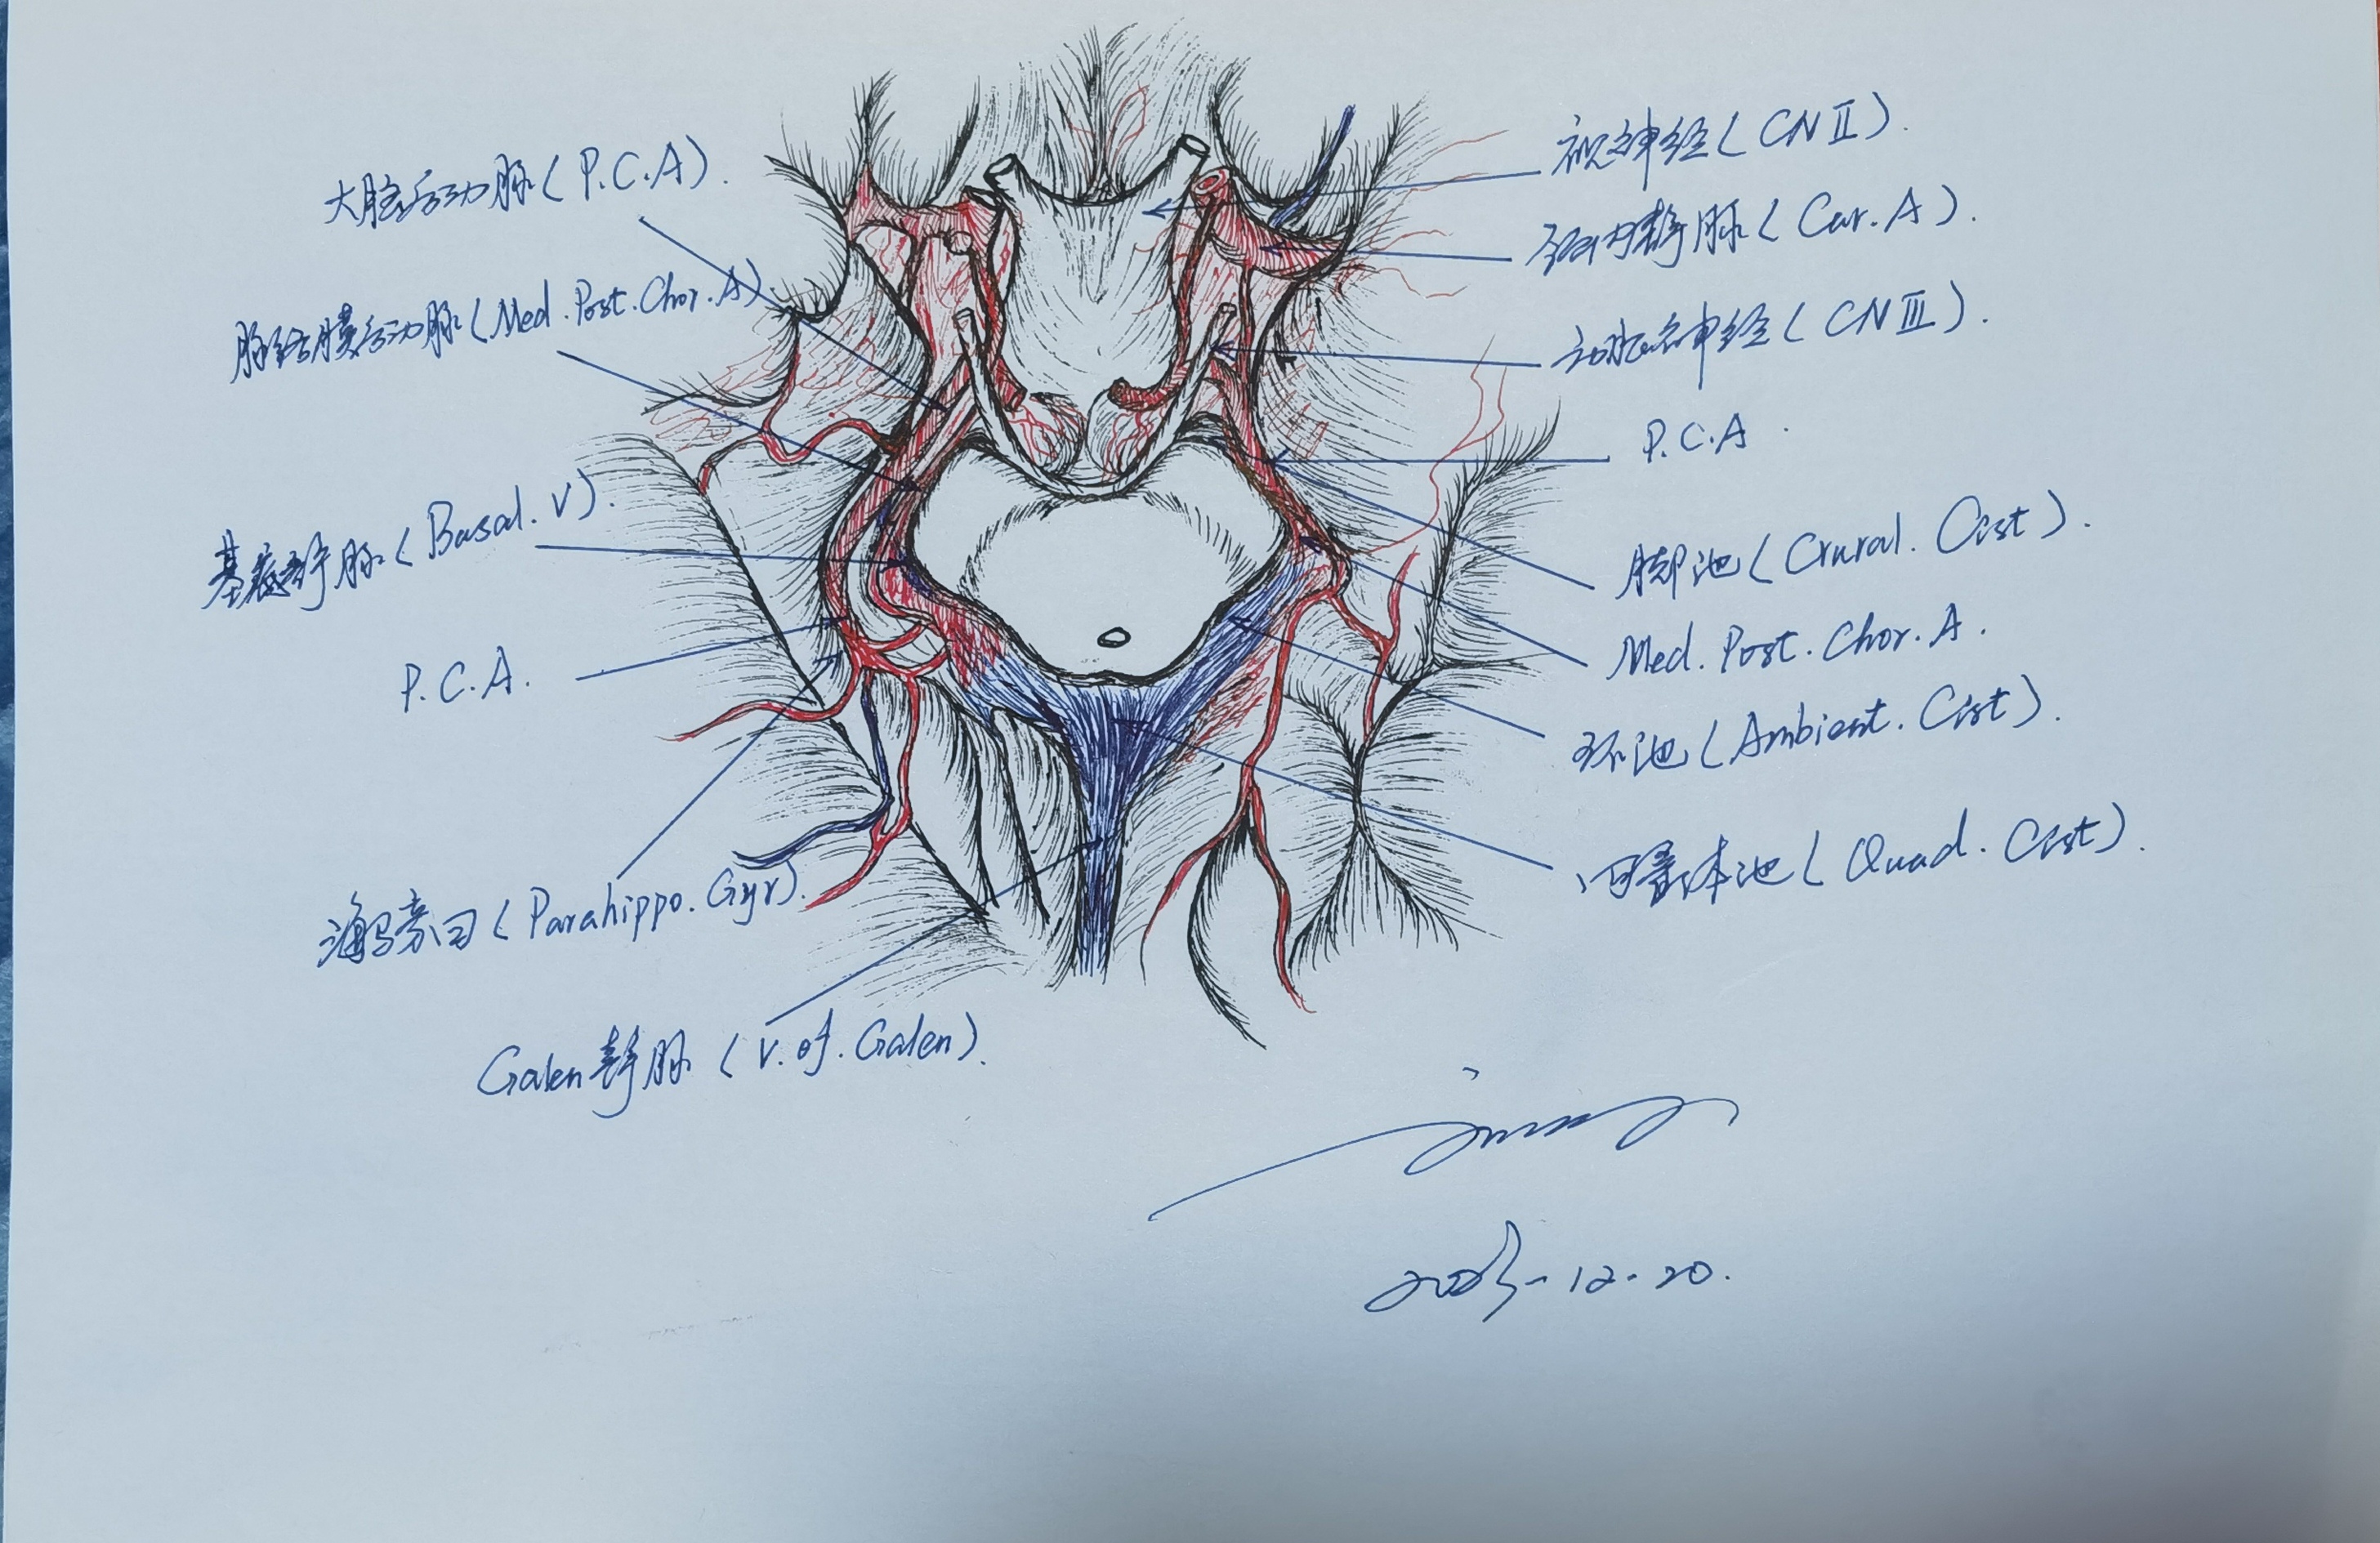 大脑后动脉(P.C.A).
脉络膜后动脉(Med.Post.Chor.A).
基底静脉(Basal.V).
P.C.A.
海马旁回(Parahippo.Gyr).
Galen静脉(V.of.Galen).
视神经(CNⅡ).
颈内静脉(Car.A).
动眼神经(CNⅢ).
P.C.A.
脚池(Crural.Cist).
Med.Post.Chor.A.
环池(Ambient.Cist).
四叠体池(Quad.Cist).
-12-20.